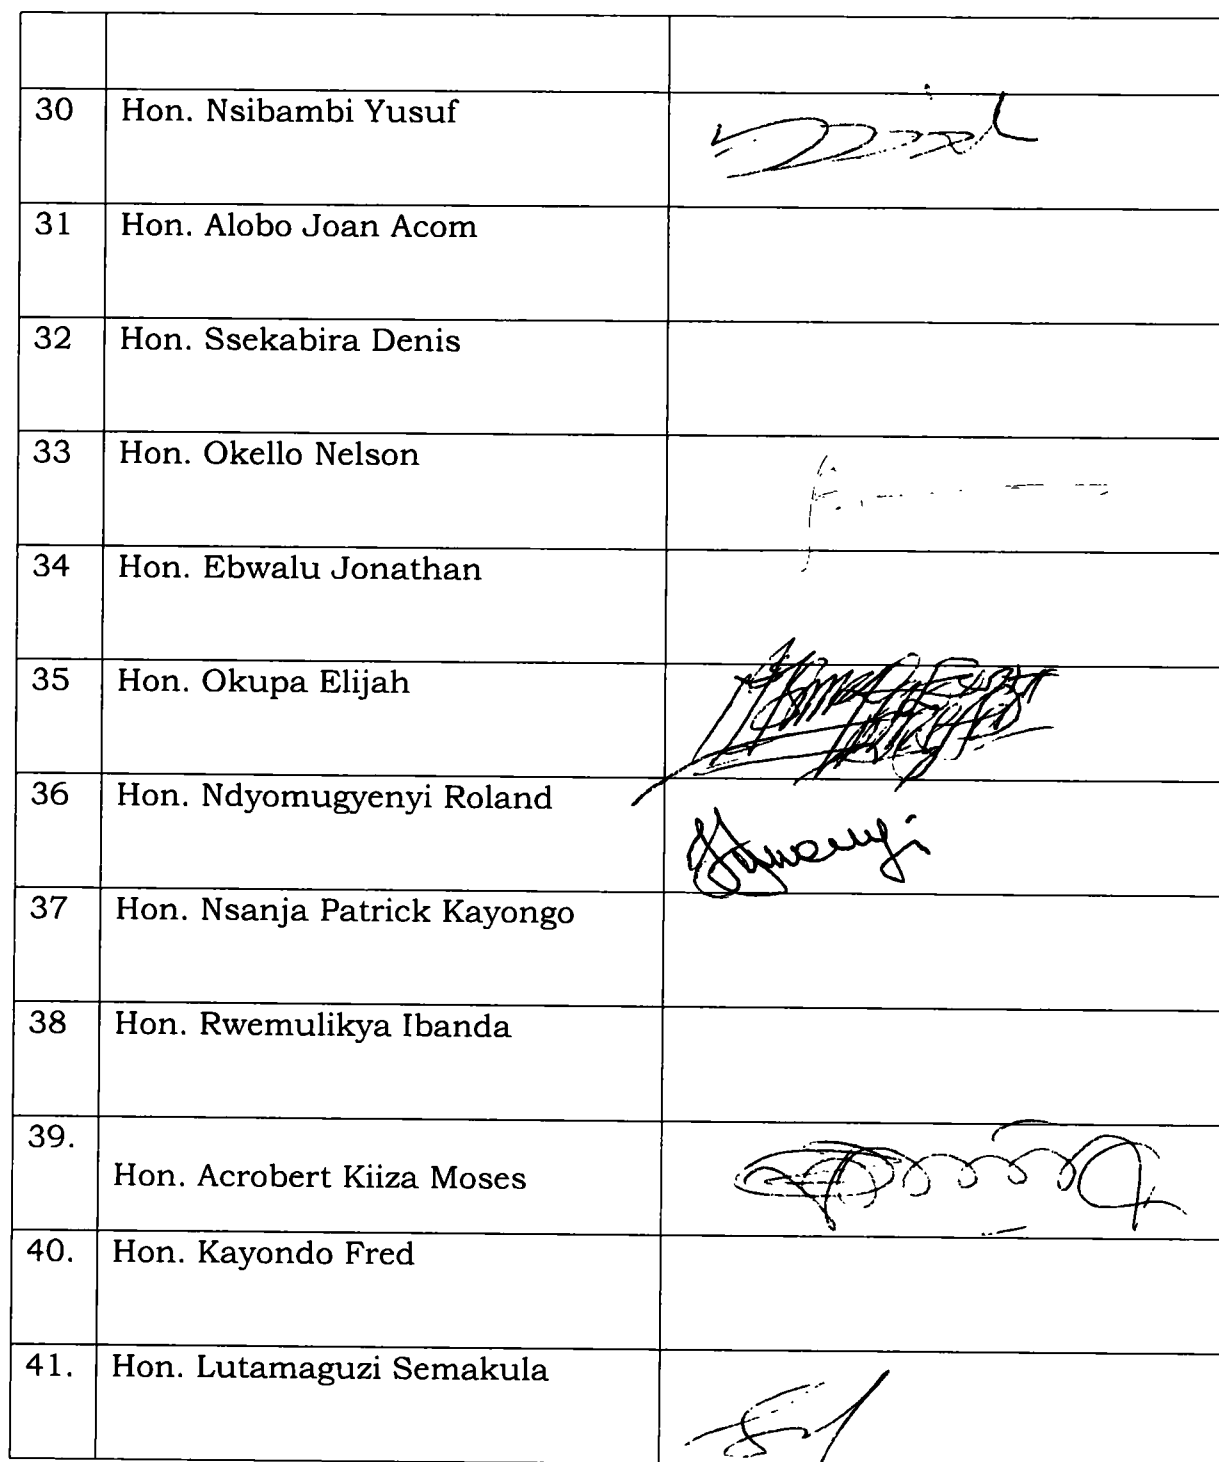 30 Hon. Nsibambi Yusuf
31 Hon. Alobo Joan Acom
32 Hon. Ssekabira Denis
33 Hon. Okello Nelson
34 Hon. Ebwalu Jonathan
35 Hon. Okupa Elijah
36 Hon. Ndyomugyenyi Roland
37 Hon. Nsanja Patrick Kayongo
38 Hon. Rwemulikya Ibanda
39.
Hon. Acrobert Kiiza Moses
40. Hon. Kayondo Fred
41. Hon. Lutamaguzi Semakula